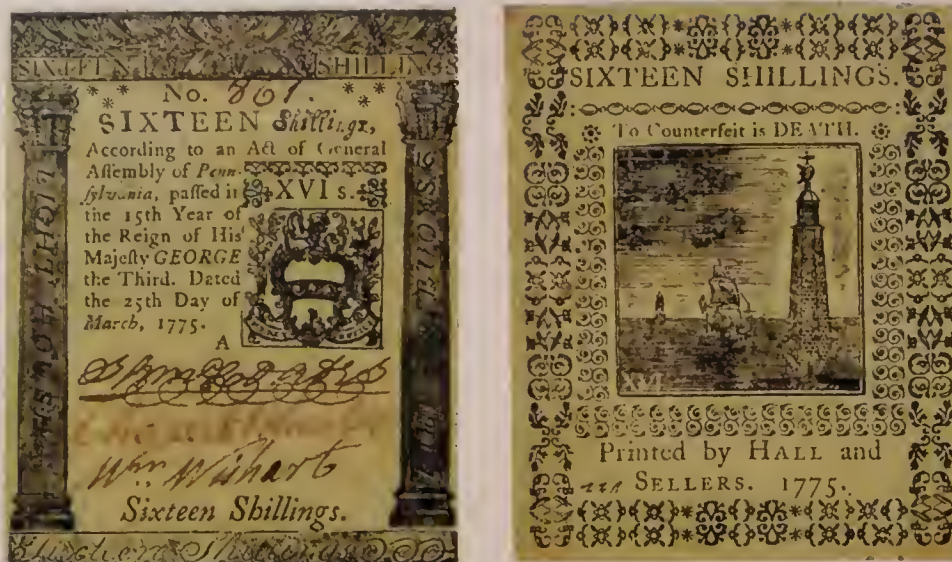 SIXTEEN SHILLINGS
No. 861.
SIXTEEN Shillings,
According to an Act of General
Assembly of Penn-
sylvania, passed in
the 15th Year of
the Reign of His
Majesty GEORGE
the Third. Dated
the 25th Day of
March, 1775.
XVI s.
A
Wm. Wishart
Sixteen Shillings.
Sixteen Shillings
SIXTEEN SHILLINGS.
To Counterfeit is DEATH.
XVI
Printed by HALL and
SELLERS. 1775.